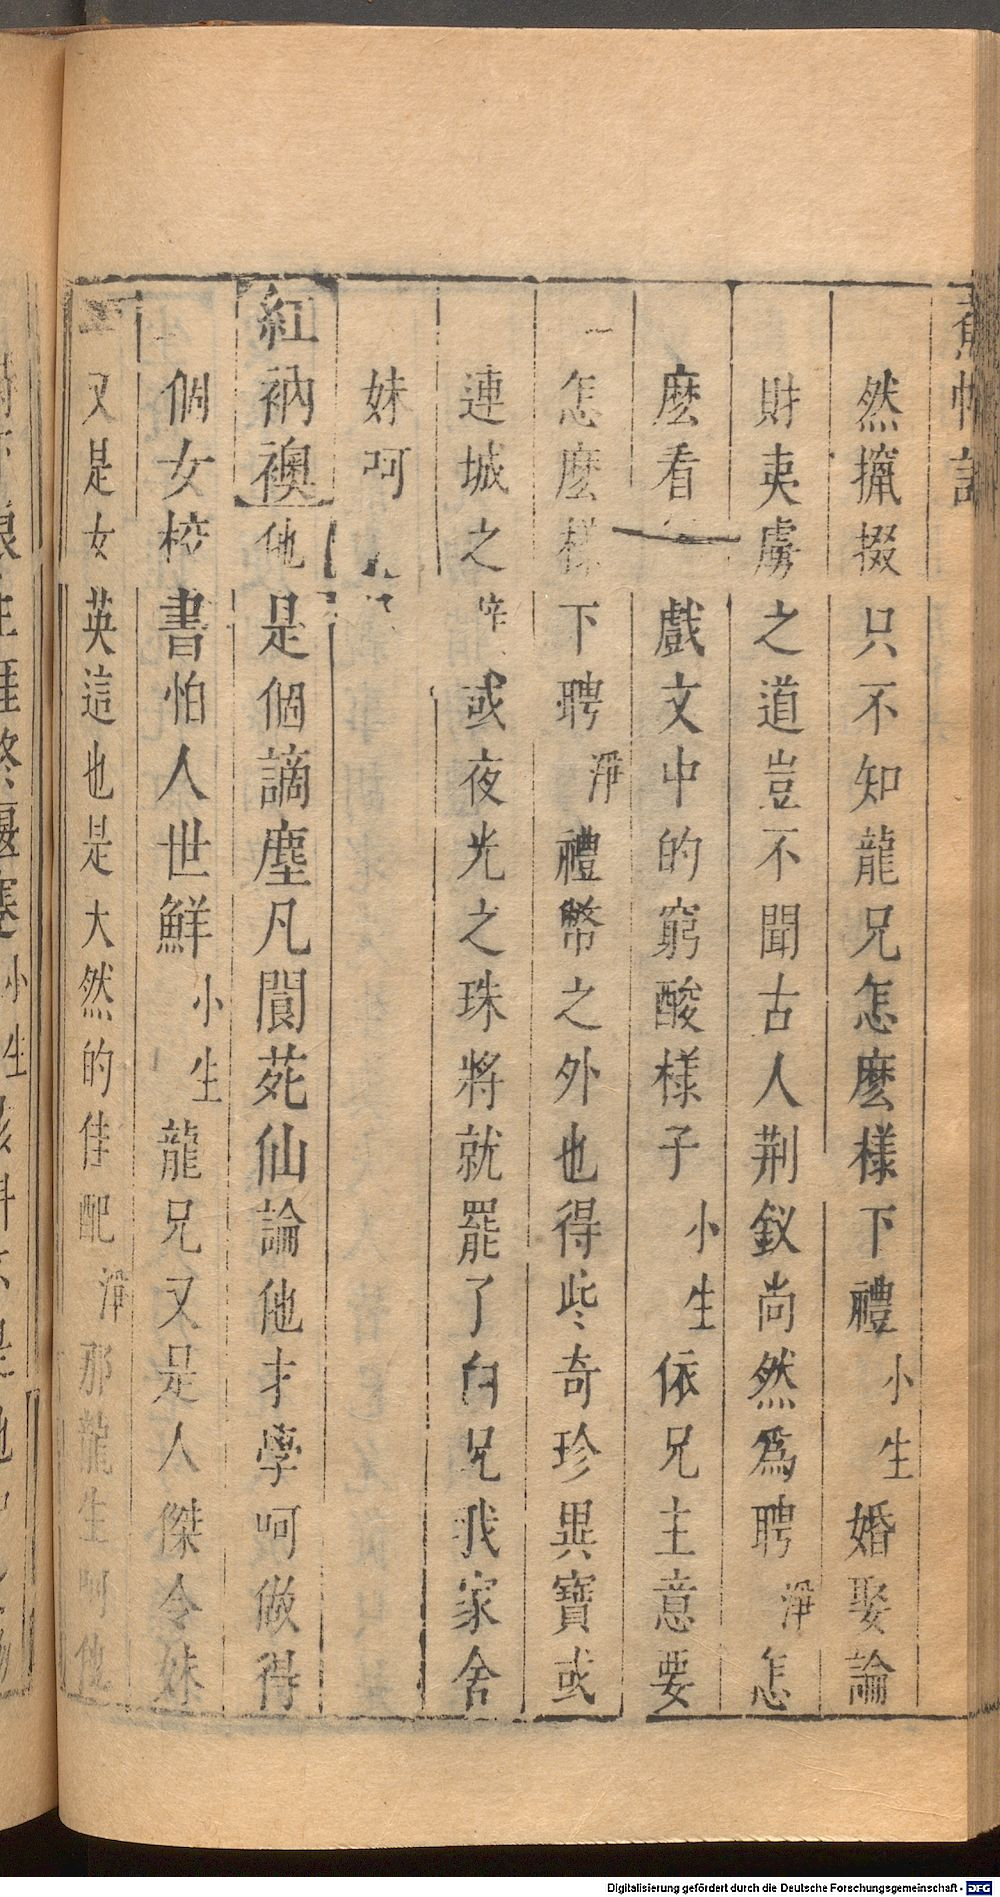 蕉帕記
然攛掇只不知龍兄怎麽樣下禮小生婚娶論
財夷虜之道豈不聞古人荆釵尚然爲聘淨怎
麽看戲文中的窮酸樣子小生依兄主意要
怎麽樣下聘淨禮幣之外也得些奇珍異寶或
連城之或夜光之珠將就罷了白兄我家舍
妹呵
紅衲襖他是個謫塵凡閬苑仙論他才學呵做得
個女校書怕人世鮮小生龍兄又是人傑令妹
又是女英這也是大然的佳配淨那龍生呵他
Digitalisierung gefördert durch die Deutsche Forschungsgemeinschaft - DFG